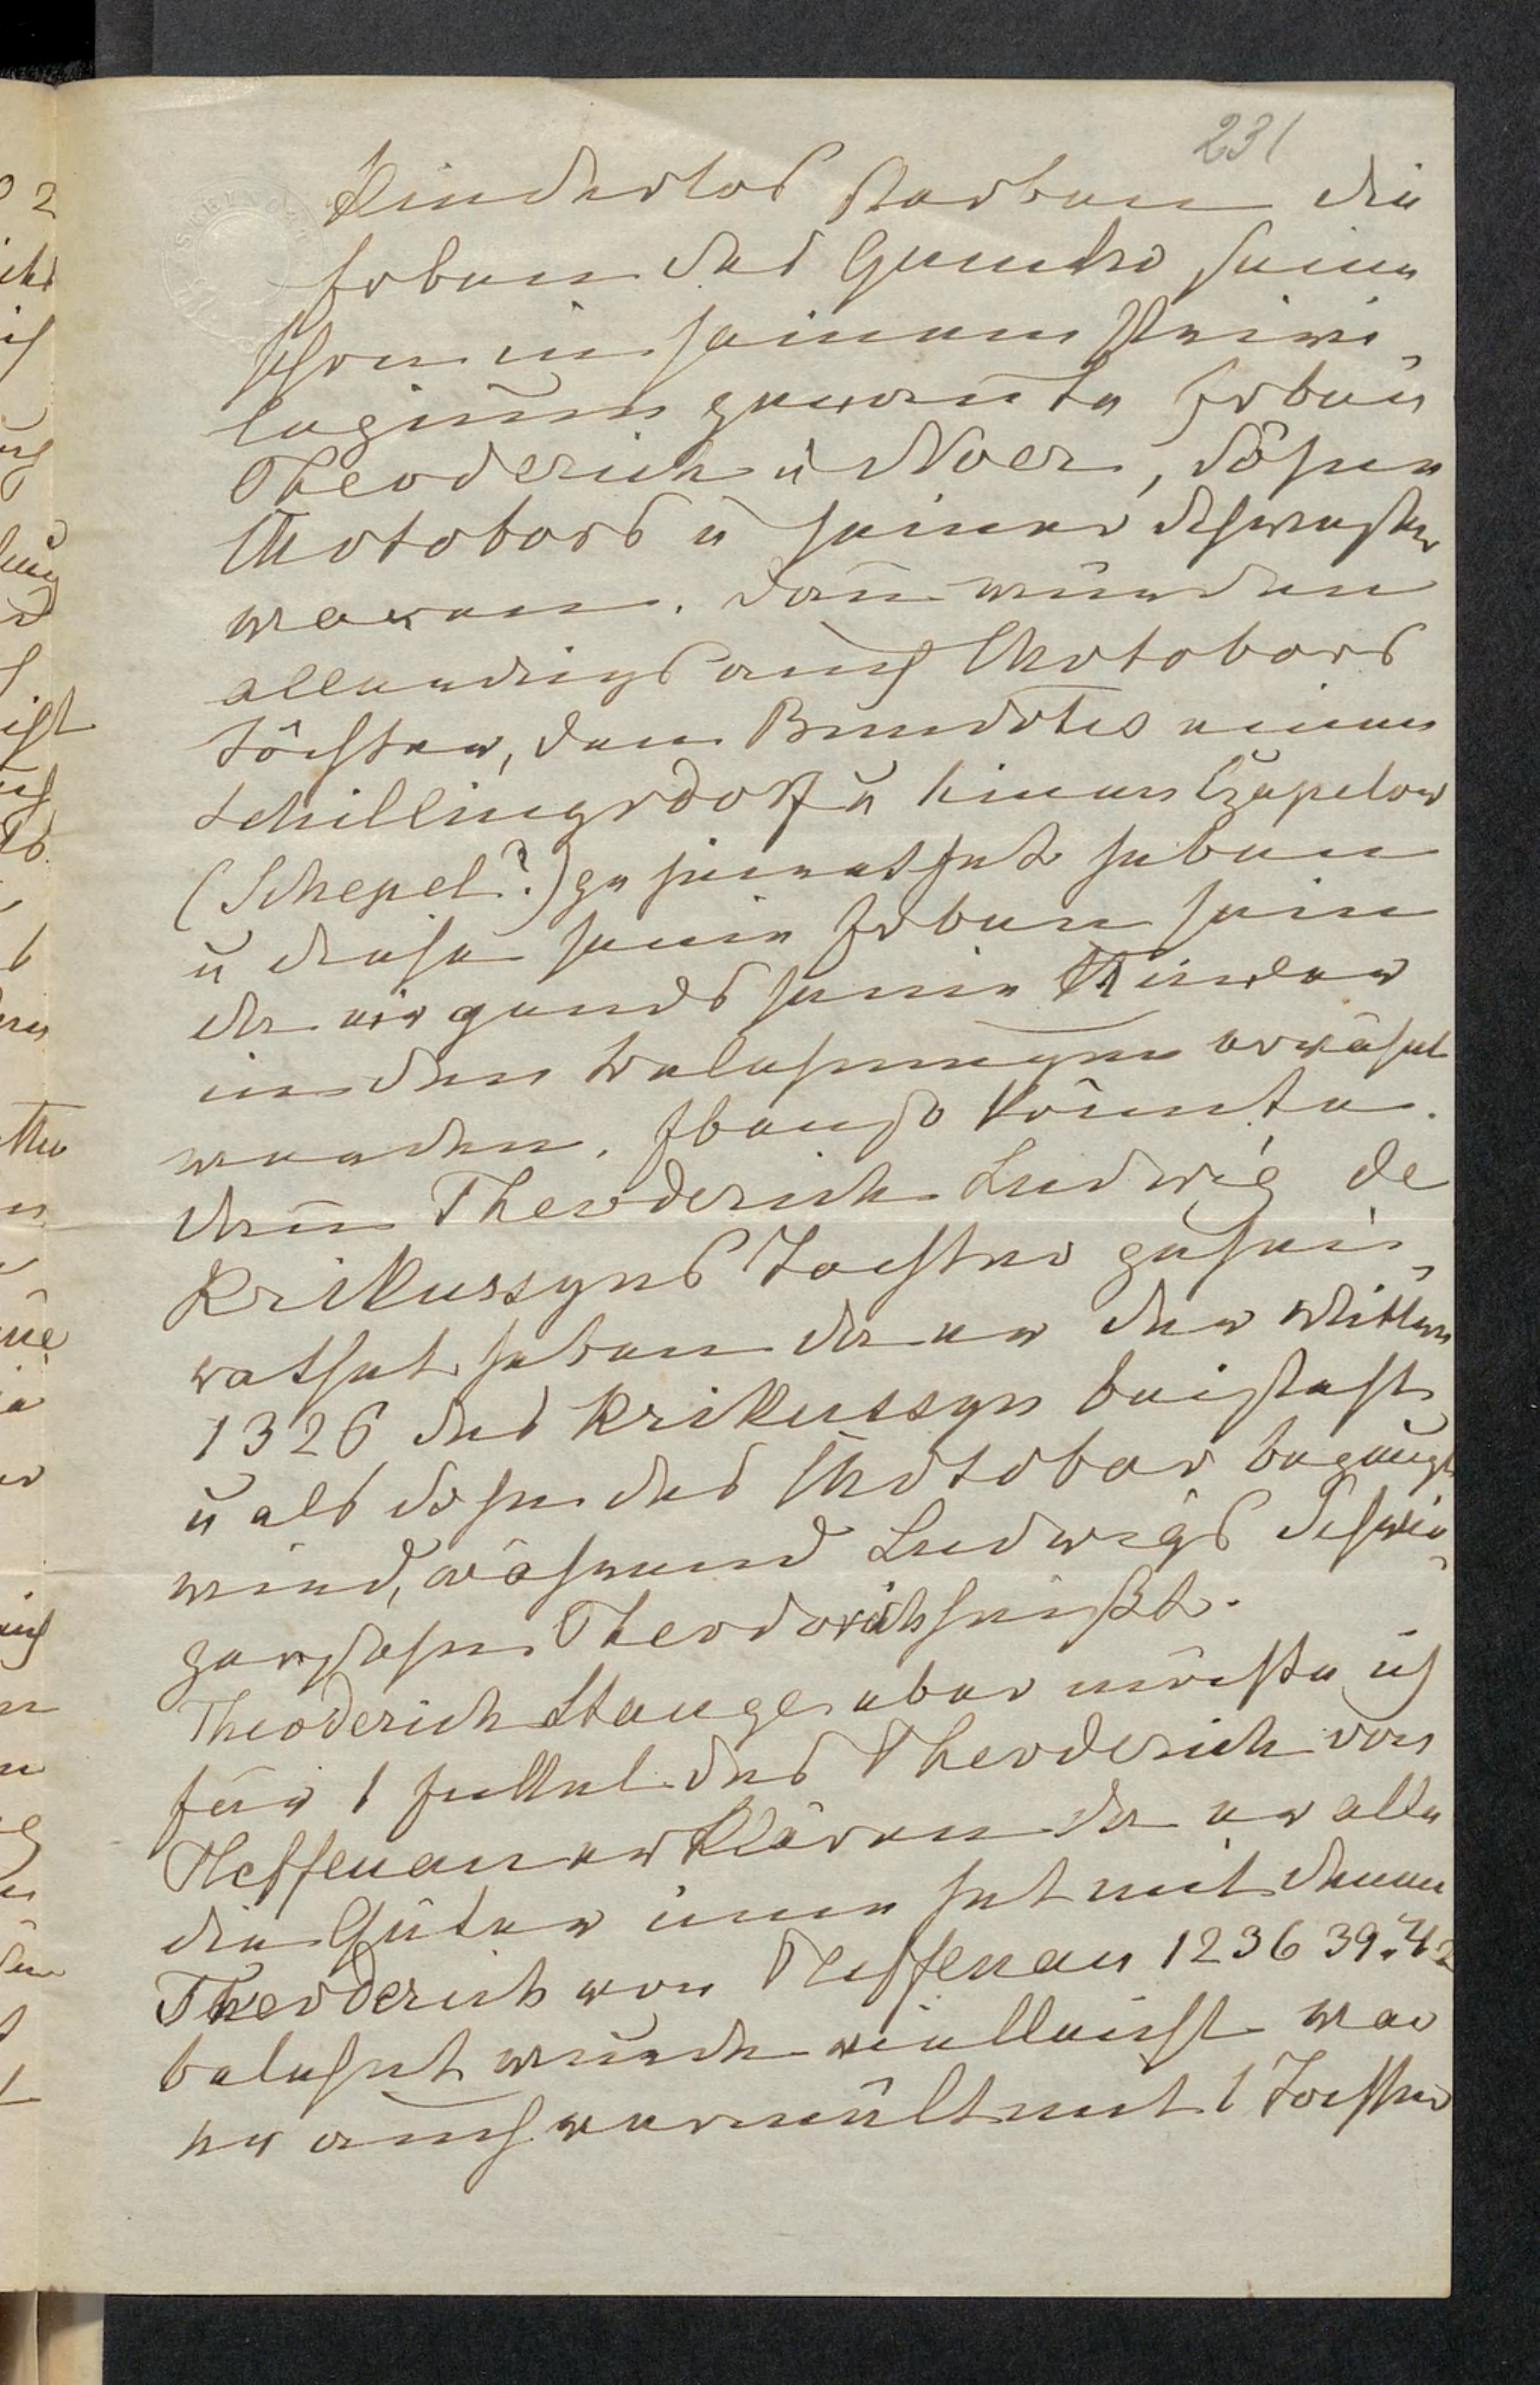 231
Kinderlos starben die
Erben des Gunthe seine
schon in seinem Privi-
legium genannte Erben
Theoderich u Noer, Söhne
Motobors u seiner Schwester
waren. Dan̄ würden
allerdings auch Motobors
Töchter, dann Bundotes einen
Schillingsdorf u einen Czapelow
(Schepel?) geheirathet haben
u diese seine Erben sein
da nirgends seine Kinder
in den Belehnungen erwähnt
werden. Ebenso könnte
dan̄ Theoderich Ludwig de
Krikussyns Tochter gehei-
rathet haben da er der Wittwe
1326 des Krikussyn beisteht
u als Sohn des Motobor bezeugt
wird, während Ludwigs Schwie-
gersohn Theodorich heißt.
Theoderich Stange aber möchte ich
für 1 Enkel des Theoderich von
Tieffenau erklären da er alle
die Güter inne hat mit denen
Theoderich von Tieffenau 1236 39. 42
belehnt wurde vielleicht war
er auch vermält mit 1 Tochter